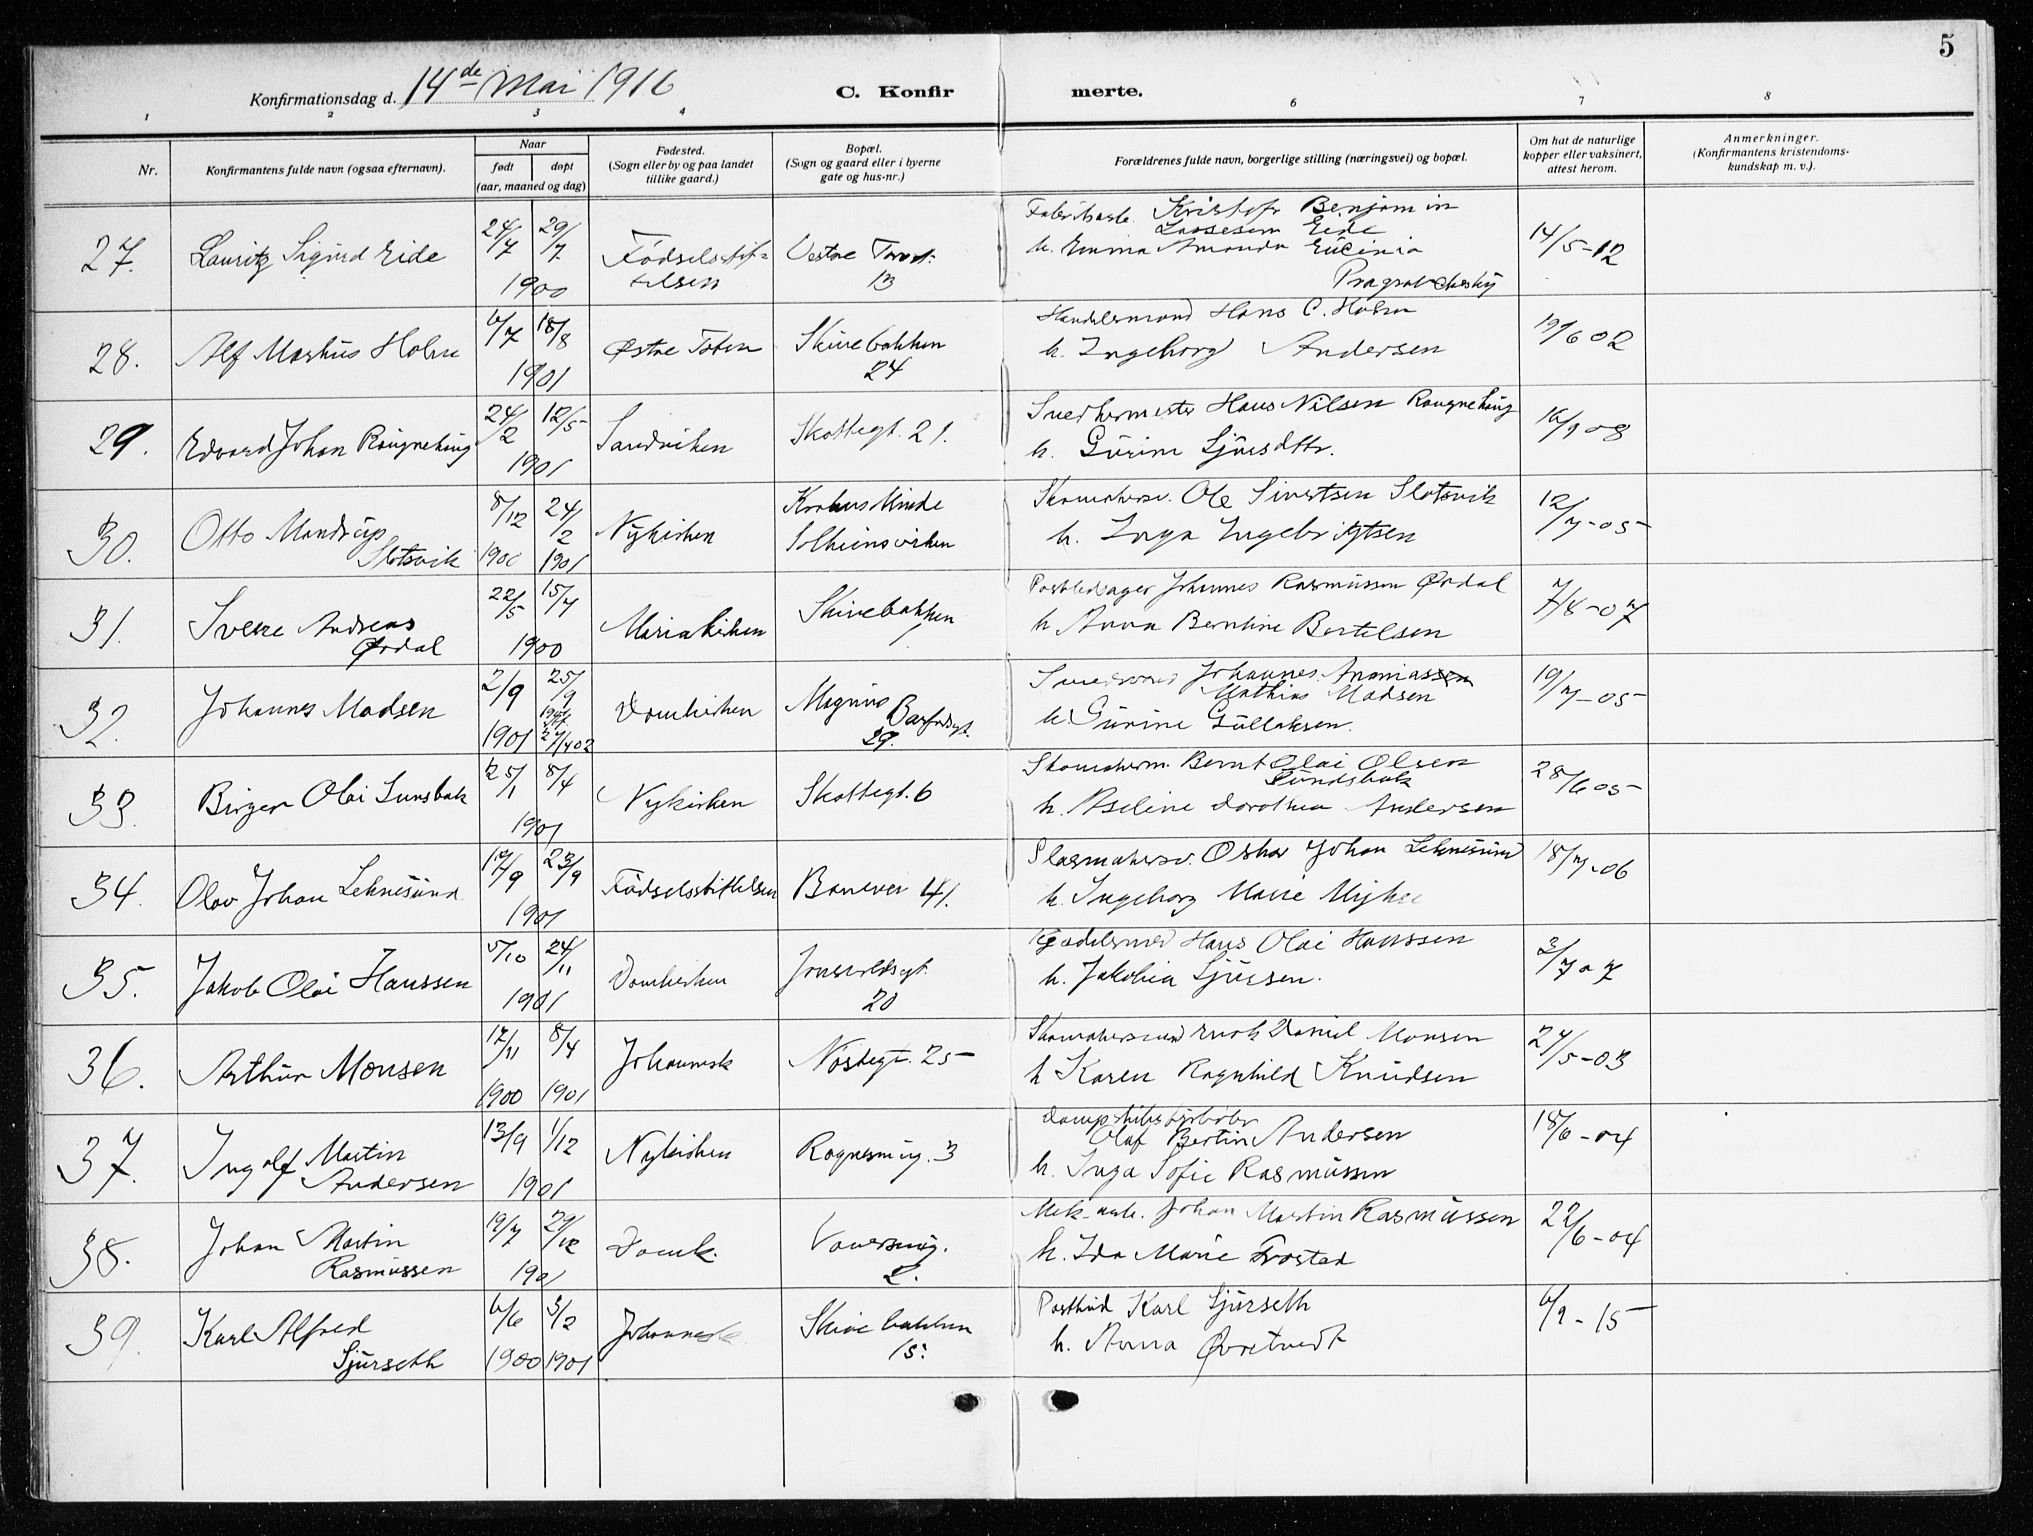 5
Konfirmationsdag d. 14de Mai 1916
C. Konfirmerte.
1 2 3 4 6 7 8
Nr.
Konfirmantens fulde navn (ogsaa efternavn).
Naar
født
døpt
(aar, maaned og dag)
Fødested.
(Sogn eller by og paa landet
tillike gaard.)
Bopæl.
(Sogn og gaard eller i byerne
gate og hus-nr.)
Forældrenes fulde navn, borgerlige stilling (næringsvei) og bopæl.
Om hat de naturlige
kopper eller vaksinert,
attest herom.
Anmerkninger.
(Konfirmantens kristendoms-
kundskap m. v.).
27. Lauritz Sigurd Eide 24/7 29/7 1900
Fødselsstif-
telsen
Vestre Torvt.
13
Fabrikarb. Kristofr Benjamin
Lassesen Eide
h. Emma Amanda
14/5-12
28. Alf Markus Holm 6/7 18/8 1901
Østre Toten
Skivebakken
24
Handelsmand Hans C. Holm
h. Ingeborg Andersen
19/6 02
29. Edvard Johan Raugnehaug 24/2 12/5 1901
Sandviken
Skottegt. 21.
Hans Nilsen Raugnehaug
h. Gurine Sjursdttr.
16/9 08
30. Otto Mandrup
Slotsvik
8/12 1900 24/2 1901
Nykirken
Minde
Solheimsviken
Skomakersv. Ole Sivertsen Slotsvik
h. Inga Ingebrigtsen
12/7-05
31. Sverre Andreas
Ørdal
22/5 15/7 1900
Mariakirken
Skivebakken
1
Postledsager Johannes Rasmussen Ørdal
h Anna Berntine Bertelsen
7/8-07
32. Johannes Madsen 2/9 1901 25/9
27/4 02
Domkirken
Magnus Barfodsgt.
29.
Johannes Ananiassen
Mathias Madsen
h. Gurine Gullaksen.
19/7-05
33. Birger Olai Sunsbak 25/1 8/4 1901
Nykirken
Skottegt. 6
Skomakerm. Bernt Olai Olsen
Sundsbak
h. Aseline Dorothea Andersen
28/6 05
34. Olav Johan Leknesund 17/9 23/9 1901
Fødselsstiftelsen
Banevei 41.
Oskar Johan Leknesund
h. Ingeborg Marie
18/7-06
35. Jakob Olai Hanssen 5/10 24/11 1901
Domkirken
Jonsvoldsgt.
20
Hans Olai Hanssen
h. Jakobia Sjursen.
3/7 07
36. Arthur Monsen 17/11 1900 8/4 1901
Johannesk
Nøstegt. 25
Skomakersvend Enok Daniel Monsen
h Karen Ragnhild Knudsen
27/5-03
37. Ingolf Martin
Andersen
13/9 1/12 1901
Nykirken
Rognesmug. 3
Dampskibsfyrbøter
Olaf Bertin Andersen
h. Inga Sofie Rasmussen
18/6-04
38. Johan Martin
Rasmussen
19/7 29/12 1901
Domk.
2.
Mek. arb. Johan Martin Rasmussen
h. Ida Marie Frostad
22/6-04
39. Karl Alfred
Sjurseth
6/6 1900 3/2 1901
Johannesk
Skivebakken
15.
Postbud Karl Sjurseth
h. Anna Øvretvedt
6/9-15